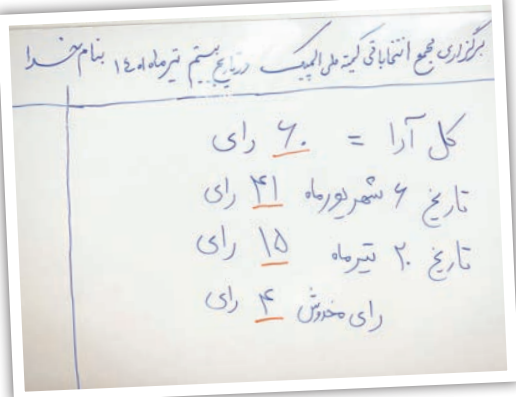 بنام خدا
برگزاری مجمع انتخاباتی کمیته ملی المپیک در تاریخ بیستم تیرماه ۱۴۰۱
کل آرا = ۶۰ رای
تاریخ ۶ شهریورماه ۴۱ رای
تاریخ ۲۰ تیرماه ۱۵ رای
رای مخدوش ۴ رای